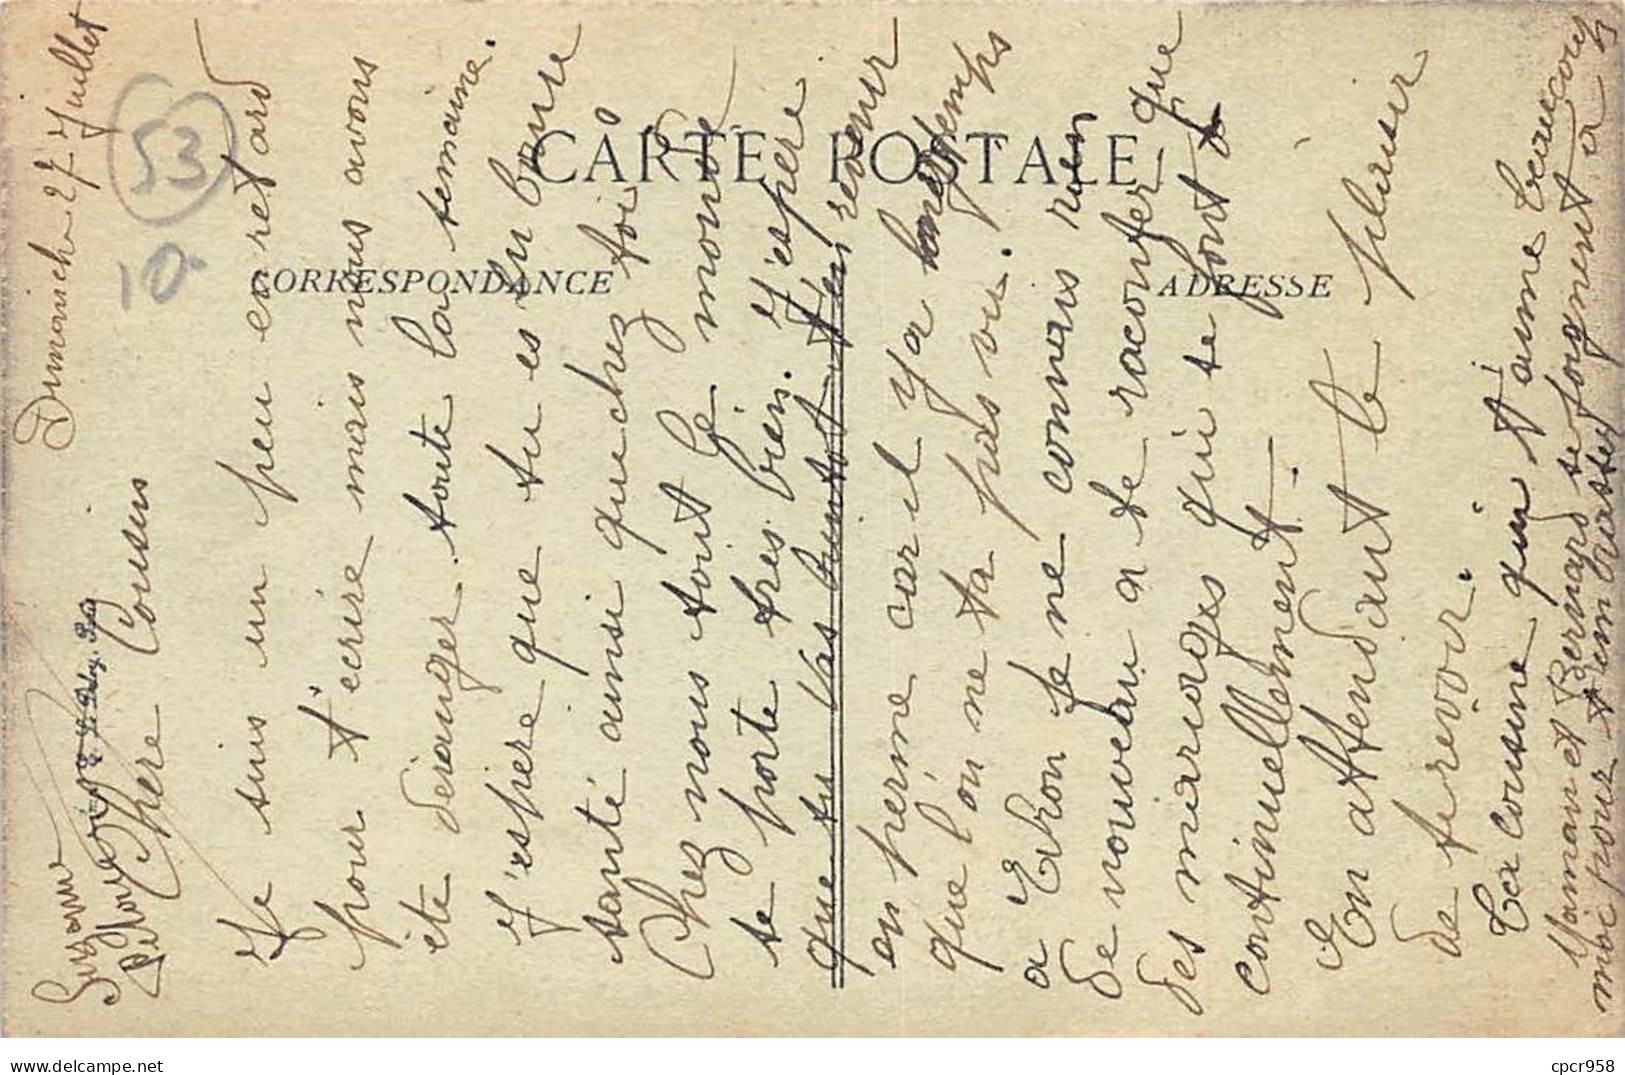 Dimanche 27 Juillet
Chère Cousine
Je suis un peu en retard
pour t'ecrire mais nous avons
été deranger toute la semaine.
J'espère que tu es en bonne
santé ainsi que chez toi
Chez nous tout le monde
se porte très bien. J'espère
que tu vas bientot t'en revenir
en perme car il y a longtemps
que l'on ne ta pas vu.
a Erhon je ne connais rien
de nouveau a te raconter que
des mariages qui se font
continuellement.
En attendant le plaisir
de te revoir.
Ta Cousine qui t'aime beaucoup
Maman et Bernard se joignent a
moi pour t'embrasser
Suzanne
CARTE POSTALE
CORRESPONDANCE
ADRESSE
53
10
cpcr958